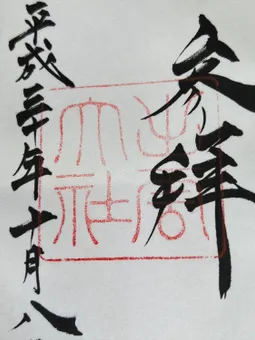 参拝
出雲
大社
平成三十年十月八日